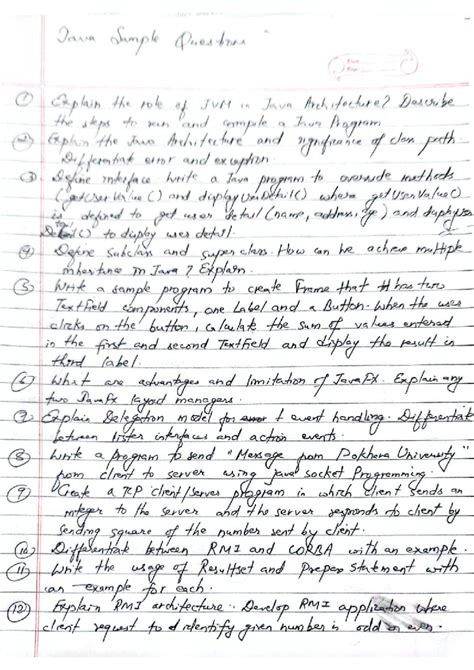 Java Sample Questions
① Explain the role of JVM in Java Architecture? Describe
the steps to run and compile a Java Program
② Explain the Java Architecture and significance of class path.
Differentiate error and exception.
③ Define interface. Write a Java program to override methods
(getUserValue() and displayUserDetail() where getUserValue()
is defined to get user detail (name, address, age) and display
Detail() to display user detail.
④ Define subclass and super class. How can be achieve multiple
inheritance in Java? Explain.
⑤ Write a sample program to create Frame that has two
TextField components, one Label and a Button. When the user
clicks on the button, calculate the sum of values entered
in the first and second Textfield and display the result in
third label.
⑥ What are advantages and limitation of JavaFX. Explain any
two JavaFx layout managers.
⑦ Explain Delegation model for event handling. Differentiate
between lister interfaces and action events.
⑧ Write a program to send "Message from Pokhara University"
from client to server using Java socket Programming.
⑨ Create a TCP client/server program in which client sends an
integer to the server and the server responds to client by
sending square of the number sent by client.
⑩ Differentiate between RMI and CORBA with an example.
⑪ Write the usage of Resultset and Prepare Statement with
an example for each.
⑫ Explain RMI architecture. Develop RMI application where
client request to identify given number is odd or even.